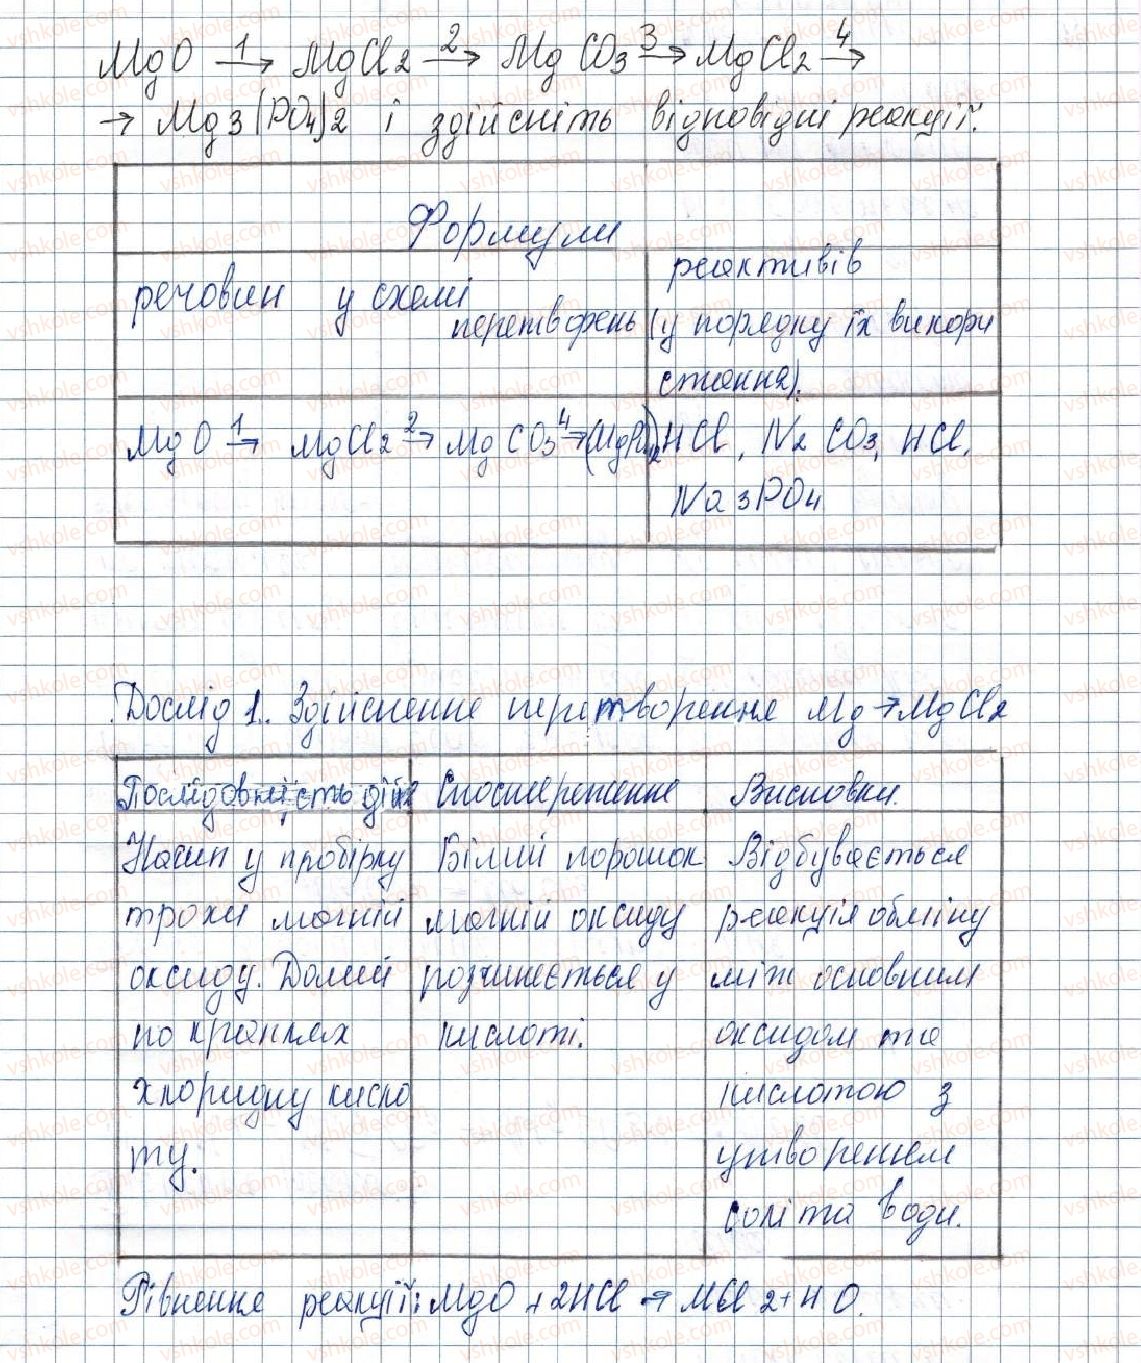 MgO 1→ MgCl2 2→ MgCO3 3→ MgCl2 4→
→ Mg3(PO4)2 і здійсніть відповідні реакції.
Формули
речовин у схемі перетворень
реактивів
(у порядку їх викори
стання).
MgO 1→ MgCl2 2→ MgCO3 4→
HCl, N2CO3, HCl,
Na3PO4
Дослід 1. Здійснення перетворення Mg→MgCl2
Послідовність дій
Спостереження
Висновки.
Насип у пробірку
трохи магній
оксиду. Долий
по краплях
хлоридну кисло
ту.
Білий порошок
магній оксиду
розчиняється у
кислоті.
Відбувається
реакція обміну
між основним
оксидом та
кислотою з
утворенням
солі та води.
Рівняння реакції: MgO + 2HCl → MCl2 + H O.
vshkole.com